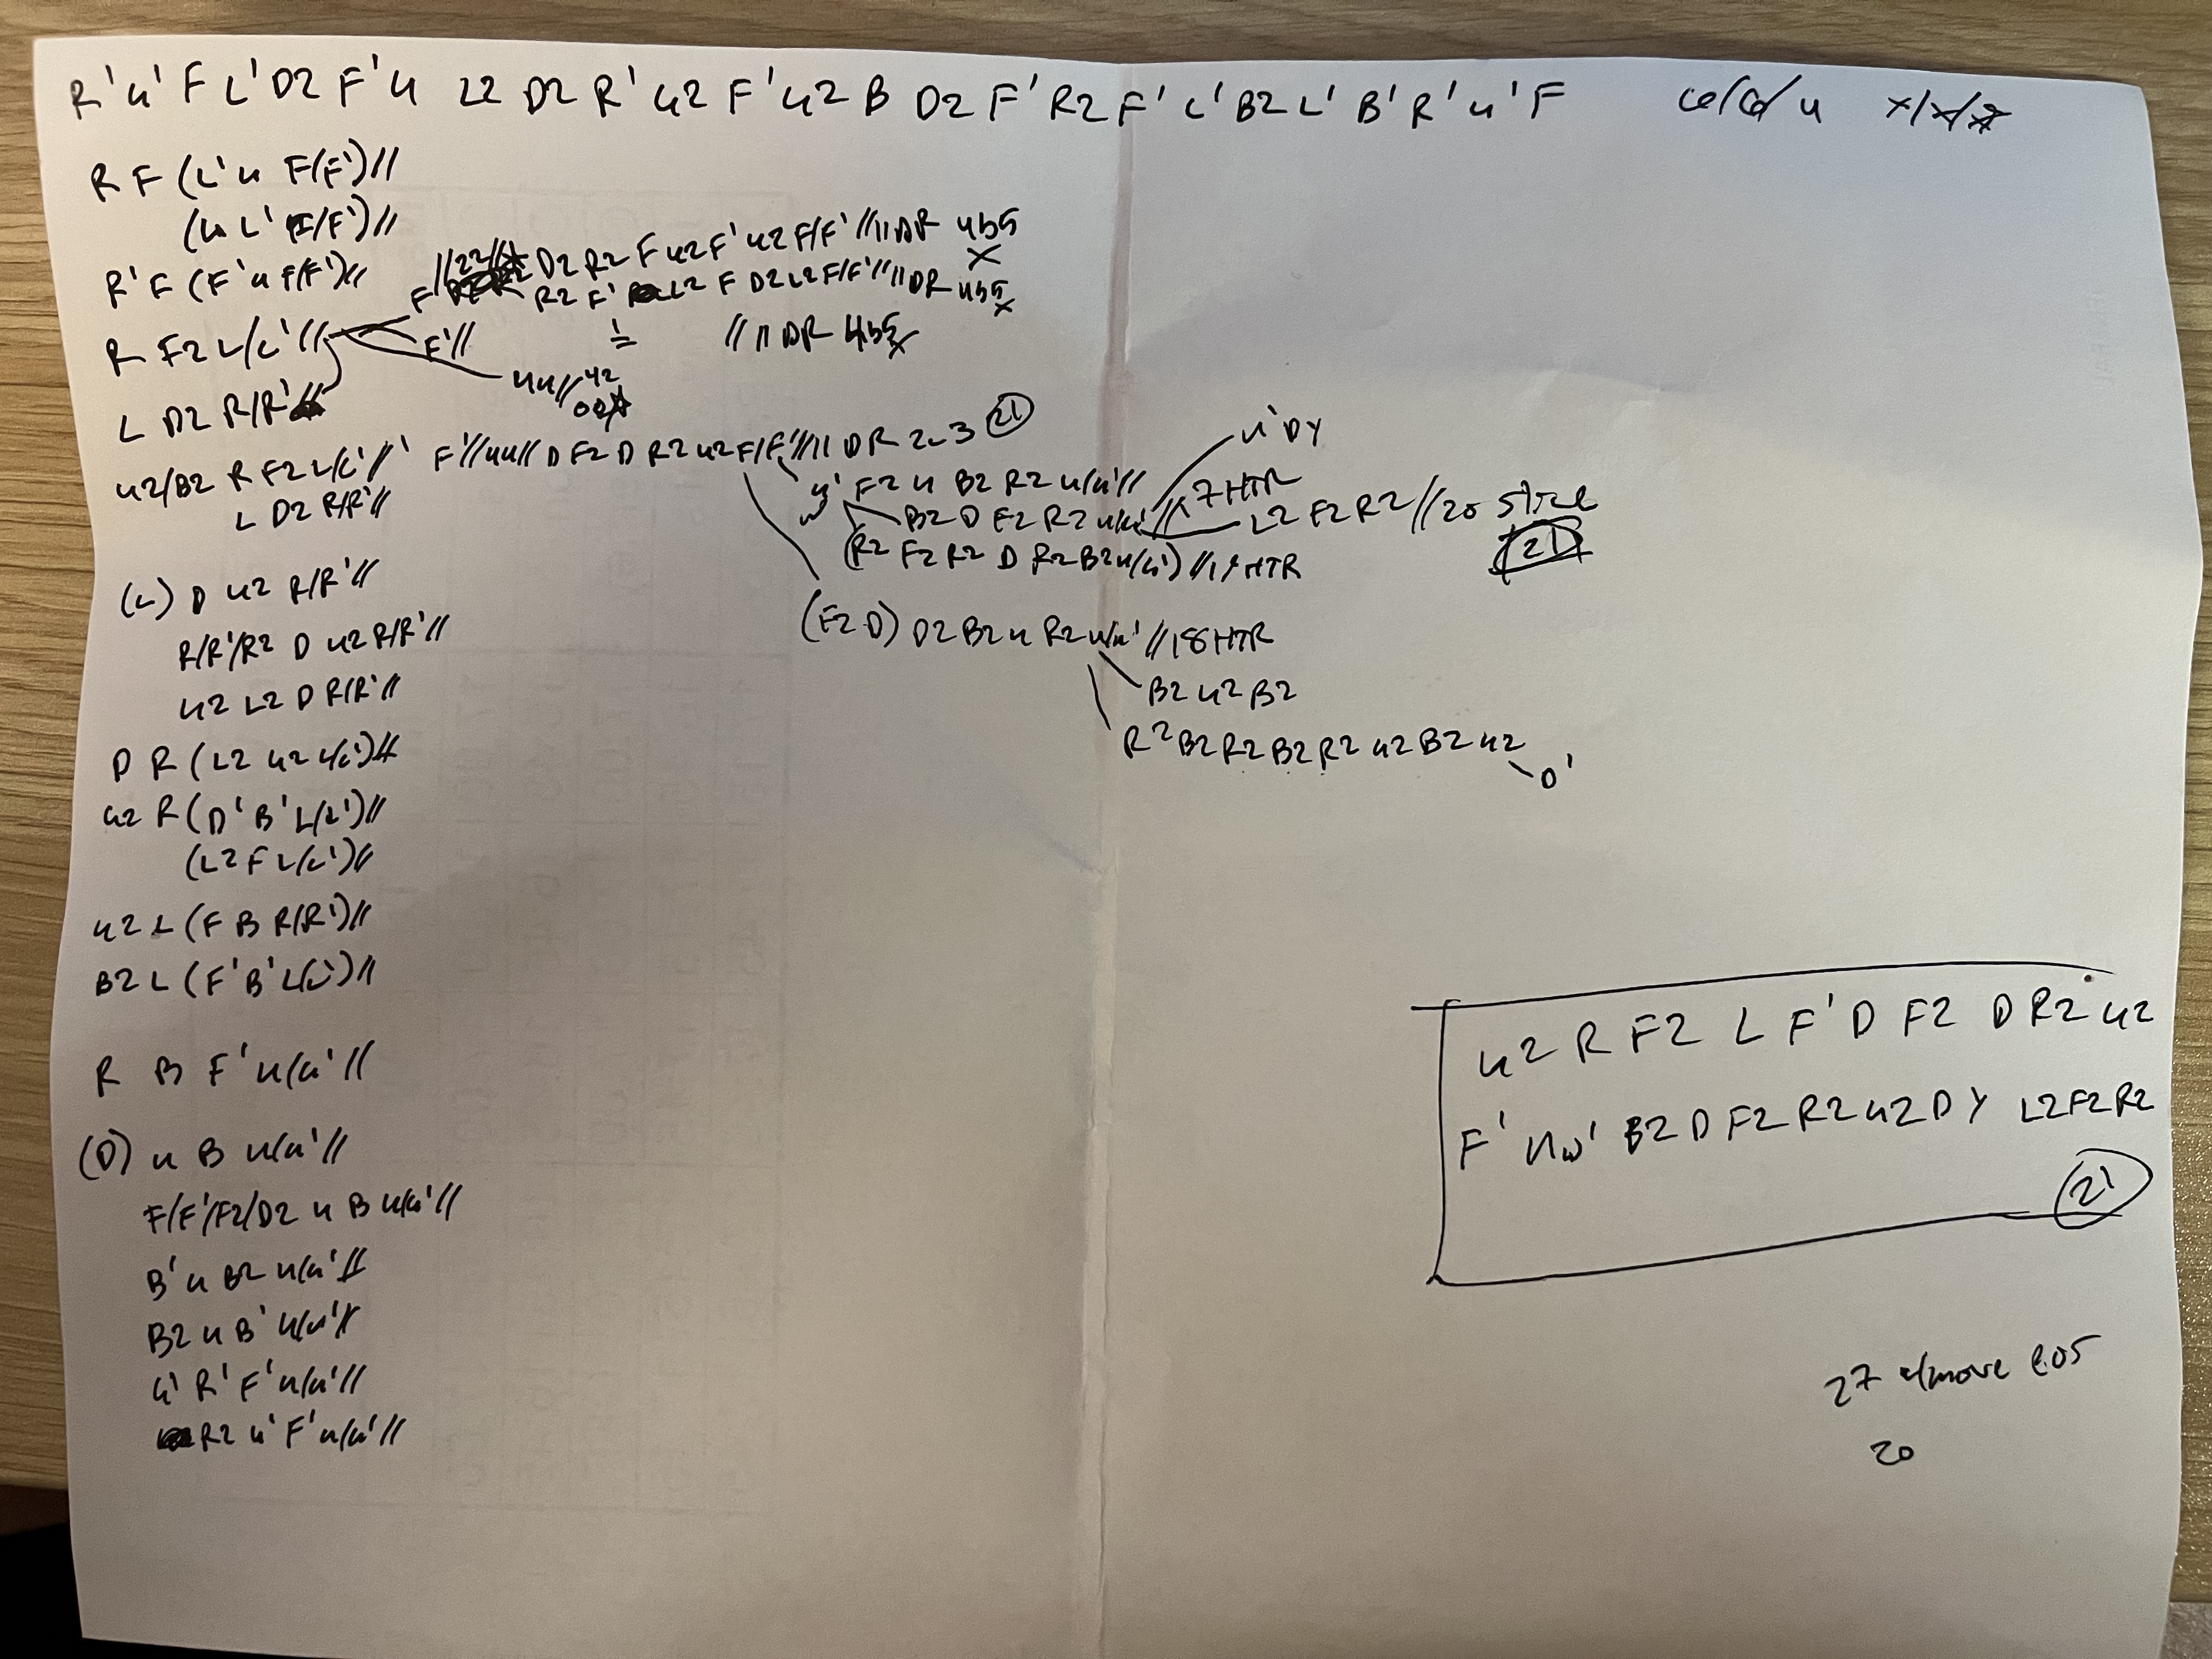 R' U' F L' D2 F' U L2 D2 R' U2 F' U2 B D2 F' R2 F' L' B2 L' B' R' U' F
R F (L' U F/F')//
(U L' F/F')//
R' F (F' U F/F')//
R F2 L/L'//
F //22// D2 R2 F U2 F' U2 F/F' //11 DR 4b5 x
R2 F' L2 F D2 L2 F/F' //11 DR 4b5 x
F'// //11 DR 4b5 x
UU//42
L D2 R/R'//
U2/B2 R F2 L/L'// F'//UU// D F2 D R2 U2 F/F'//11 DR 2c3 21
L D2 R/R'//
U' DY
F2 U B2 R2 U/U'//
Uw' B2 D F2 R2 U/U' //17 HTR
L2 F2 R2 //20 slice
21
(R2 F2 R2 D R2 B2 U/U') //19 HTR
(L) D U2 R/R'//
(F2 D) D2 B2 U R2 U/U' //18 HTR
R/R'/R2 D U2 R/R'//
U2 L2 D R/R'//
B2 U2 B2
R2 B2 R2 B2 R2 U2 B2 U2
D'
D R (L2 U2 L/L')//
U2 R (D' B' L/L')//
(L2 F L/L')//
U2 L (F B R/R')//
B2 L (F' B' L/L')//
R B F' U/U'//
(D) U B U/U'//
F/F'/F2/D2 U B U/U'//
B' U B2 U/U'//
B2 U B' U/U'//
U' R' F' U/U'//
R2 U' F' U/U'//
U2 R F2 L F' D F2 D R2 U2
F' Uw' B2 D F2 R2 U2 D Y L2 F2 R2
21
27 4/move EOs
20